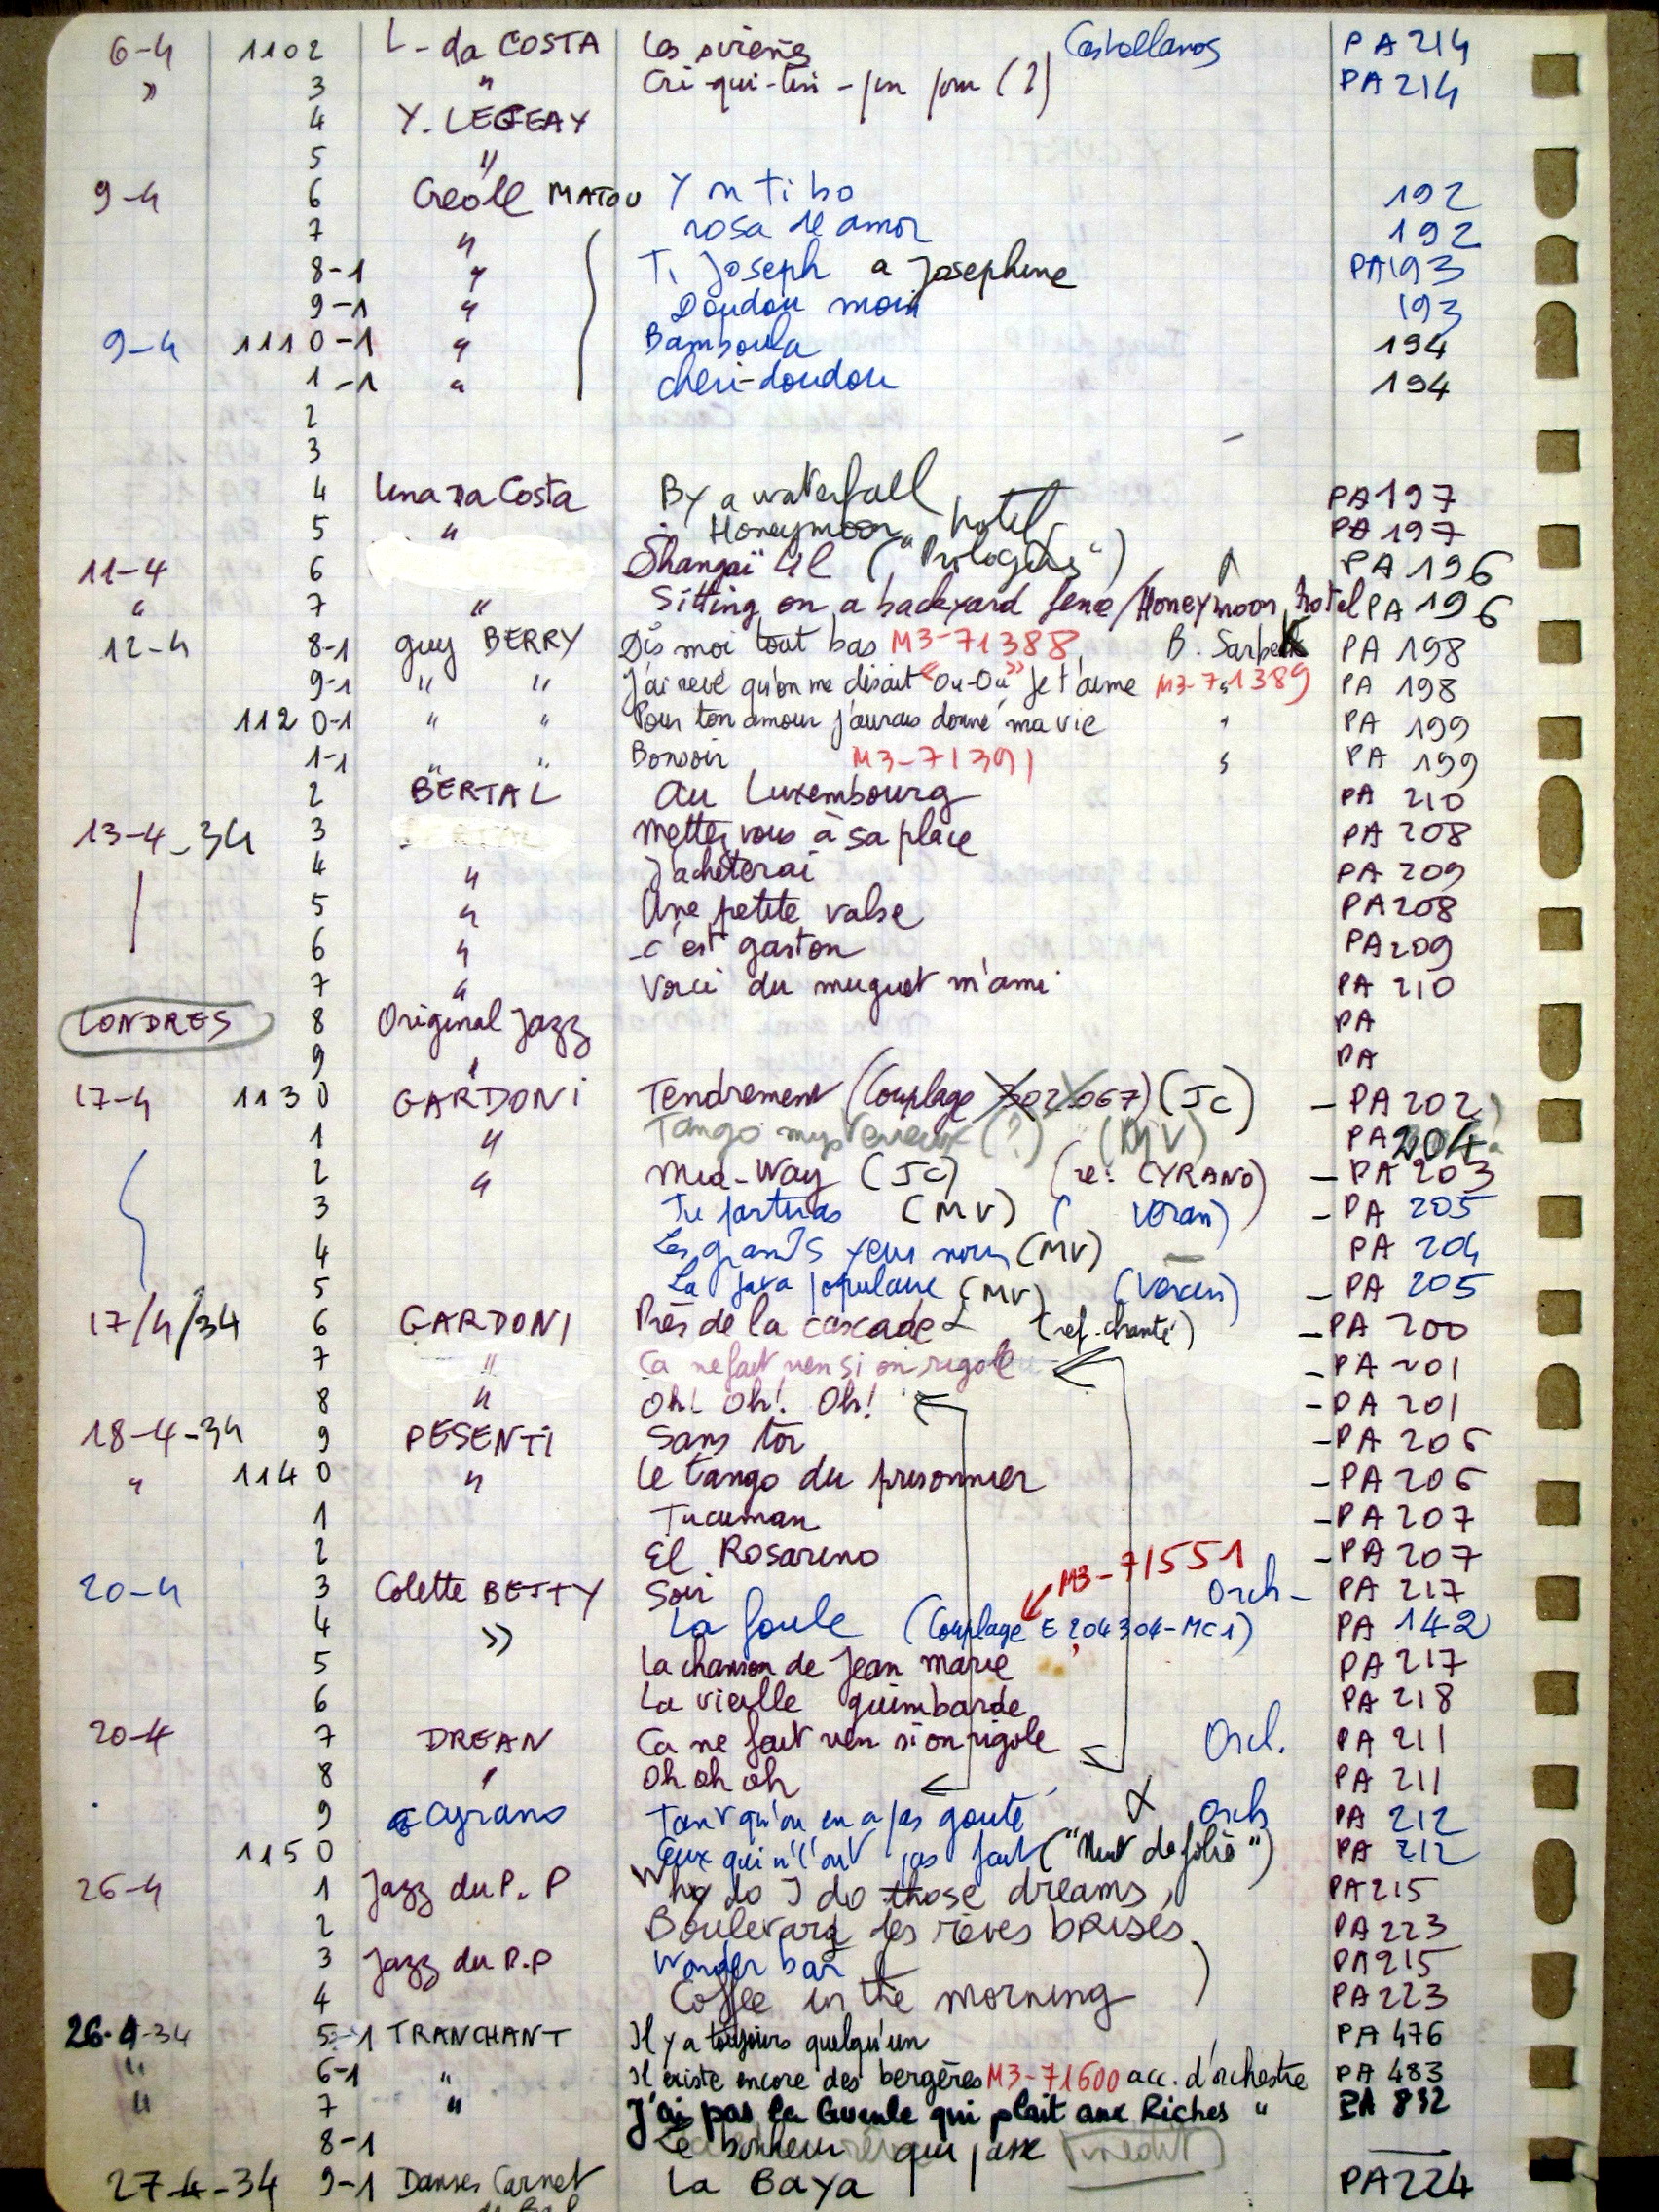 6-4 1102 L-da COSTA Les sirènes Castellanos PA 214
» 3 " Cri-qui-tin - (?) PA 214
4 Y. LEGEAY
5 "
9-4 6 Creole MATOU Y m ti bo 192
7 " rosa de amor 192
8-1 " Ti Joseph a Josephine PA193
9-1 " Doudou moin 193
9-4 1110-1 " Bamboula 194
1-1 " cheri-doudou 194
2
3
4 Lina Da Costa By a waterfall PA197
5 " Honeymoon hotel PA 197
11-4 6 Shangaï Lil ("Prologues") PA 196
" 7 " Sitting on a backyard fence/Honeymoon hotel PA 196
12-4 8-1 guy BERRY Dis moi tout bas M3-71388 B. Sarbek PA 198
9-1 " " J'ai revé qu'on me disait "Ou-Ou" Je t'aime M3-71389 " PA 198
1120-1 " " Pour ton amour j'aurais donné ma vie " PA 199
1-1 " " Bonsoir M3-71391 " PA 199
2 BERTAL au Luxembourg PA 210
13-4-34 3 Mettez vous à sa place PA 208
4 " J'acheterai PA 209
5 " Une petite valse PA208
6 " c'est gaston PA209
7 " Voici du muguet m'ami PA 210
LONDRES 8 Original Jazz PA
9 " PA
17-4 1130 GARDONI Tendrement (Couplage 302.067) (JC) - PA 202
1 " Tango mysterieux (?) (MV) PA 204
2 " Mid-Way (JC) (re: CYRANO) - PA 203
3 Tu partiras (MV) ( Voran) - PA 205
4 Les grands yeux noirs (MV) — PA 204
5 La java populaire (MV) (Voran) - PA 205
17/4/34 6 GARDONI Près de la cascade (ref. chanté) - PA 200
7 " Ca ne fait rien si on rigole - PA 201
8 " Oh! Oh! Oh! - PA 201
18-4-34 9 PESENTI Sans toi - PA 206
" 1140 " Le tango du prisonnier - PA 206
1 Tucuman - PA 207
2 El Rosarino - PA 207
20-4 3 Colette BETTY Soir M3-71551 Orch - PA 217
4 » La foule (Couplage E 204304-MC1) PA 142
5 La chanson de Jean marie PA 217
6 La vieille guimbarde PA 218
20-4 7 DREAN Ca ne fait rien si on rigole Orch. PA 211
8 " Oh oh oh PA 211
9 Cyrano Tant qu'on en a pas goute Orch PA 212
1150 Ceux qui n'l'ont pas fait ("Nuit de folie") PA 212
26-4 1 Jazz du P. P Why do I do those dreams, PA215
2 Boulevard des rêves brisés PA223
3 Jazz du P.P Wonder bar PA215
4 Coffee in the morning PA223
26-4-34 5-1 TRANCHANT Il y a toujours quelqu'un PA 476
" 6-1 " Il existe encore des bergères M3-71600 acc. d'orchestre PA 483
" 7 " J'ai pas la Gueule qui plait aux Riches " PA 832
8-1 Le bonheur qui passe (inedit) —
27-4-34 9-1 Danses Carnet La Baya PA224
de Bal